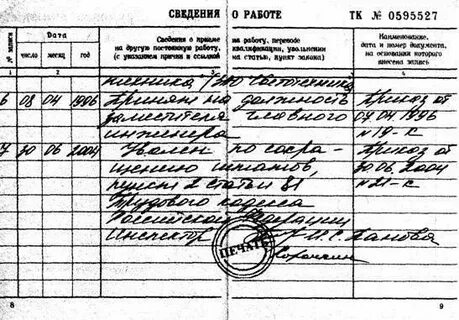 СВЕДЕНИЯ О РАБОТЕ ТК № 0595527
№ записи
Дата
число месяц год
Сведения о приеме на работу, переводе
на другую постоянную работу, квалификации, увольнении
(с указанием причин и ссылкой на статью, пункт закона)
Наименование,
дата и номер документа,
на основании которого
внесена запись
1 2 3 4
техника
6 08 04 1996 Принят на должность Приказ от
заместителя главного 04 1996
инженера № 19-к
7 30 06 2004 Уволен по сокра- Приказ от
щению штатов, 30.06.2004
пункт 2 статьи 81 № 21-к
Трудового кодекса
Российской Федерации
Инспектор И.С. Панова
ПЕЧАТЬ
8 9